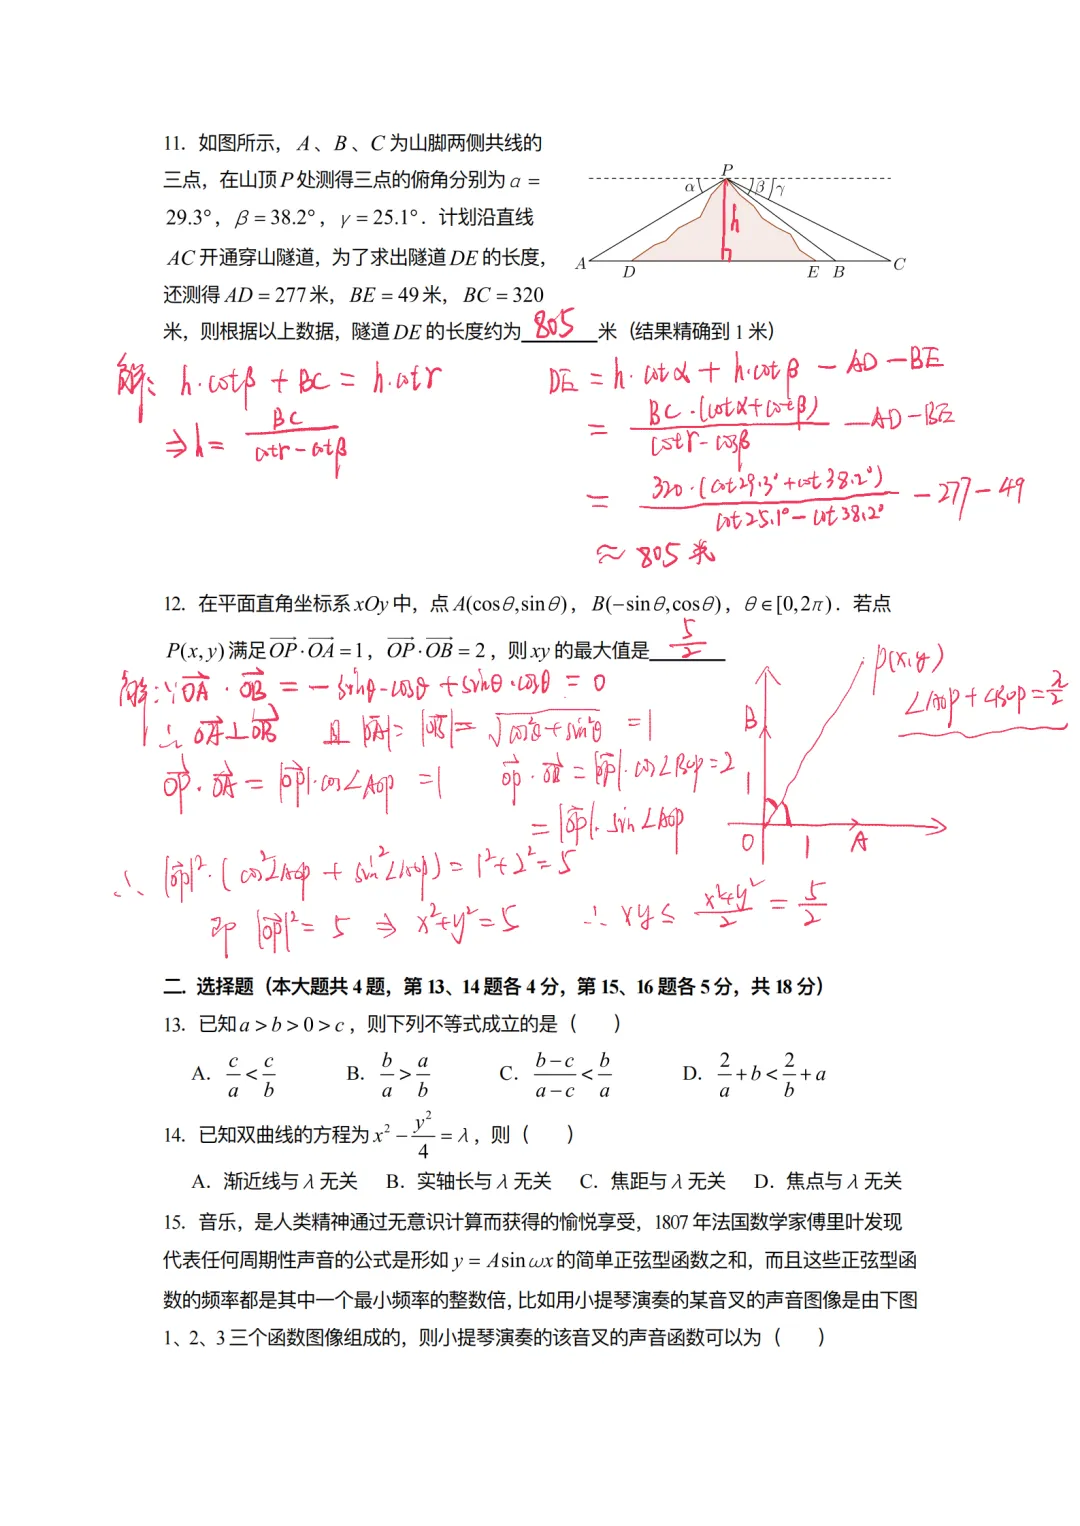 11. 如图所示，A、B、C 为山脚两侧共线的
三点，在山顶P处测得三点的俯角分别为α =
29.3°，β = 38.2°，γ = 25.1°．计划沿直线
AC 开通穿山隧道，为了求出隧道DE 的长度，
还测得 AD = 277米，BE = 49米，BC = 320
米，则根据以上数据，隧道DE 的长度约为 805 米（结果精确到 1 米）
P
α β γ
h
A D E B C
解: h·cotβ + BC = h·cotr
⇒ h = BC / (cotr − cotβ)
DE = h·cotα + h·cotβ − AD − BE
= BC·(cotα+cotβ) / (cotr − cosβ) − AD − BE
= 320·(cot29.3°+cot38.2°) / (cot25.1° − cot38.2°) − 277 − 49
≈ 805 米
12. 在平面直角坐标系xOy中，点A(cosθ,sinθ)，B(−sinθ,cosθ)，θ∈[0,2π)．若点
P(x,y)满足OP·OA=1，OP·OB=2，则xy的最大值是 5/2
解: ∵ OA·OB = −sinθ·cosθ + sinθ·cosθ = 0
∴ OA⊥OB 且 |OA| = |OB| = √(cos²θ+sin²θ) = 1
OP·OA = |OP|·cos∠AOP = 1 OP·OB = |OP|·cos∠BOP = 2
= |OP|·sin∠AOP
∴ |OP|²·(cos²∠AOP + sin²∠AOP) = 1²+2² = 5
即 |OP|² = 5 ⇒ x²+y² = 5 ∴ xy ≤ (x²+y²)/2 = 5/2
P(x,y)
∠AOP + ∠BOP = π/2
B
1
O 1 A
二. 选择题（本大题共 4 题，第 13、14 题各 4 分，第 15、16 题各 5 分，共 18 分）
13. 已知a > b > 0 > c，则下列不等式成立的是（ ）
A. c/a < c/b B. b/a > a/b C. (b−c)/(a−c) < b/a D. 2/a + b < 2/b + a
14. 已知双曲线的方程为x² − y²/4 = λ，则（ ）
A. 渐近线与λ无关 B. 实轴长与λ无关 C. 焦距与λ无关 D. 焦点与λ无关
15. 音乐，是人类精神通过无意识计算而获得的愉悦享受，1807 年法国数学家傅里叶发现
代表任何周期性声音的公式是形如 y = Asinωx 的简单正弦型函数之和，而且这些正弦型函
数的频率都是其中一个最小频率的整数倍，比如用小提琴演奏的某音叉的声音图像是由下图
1、2、3 三个函数图像组成的，则小提琴演奏的该音叉的声音函数可以为（ ）